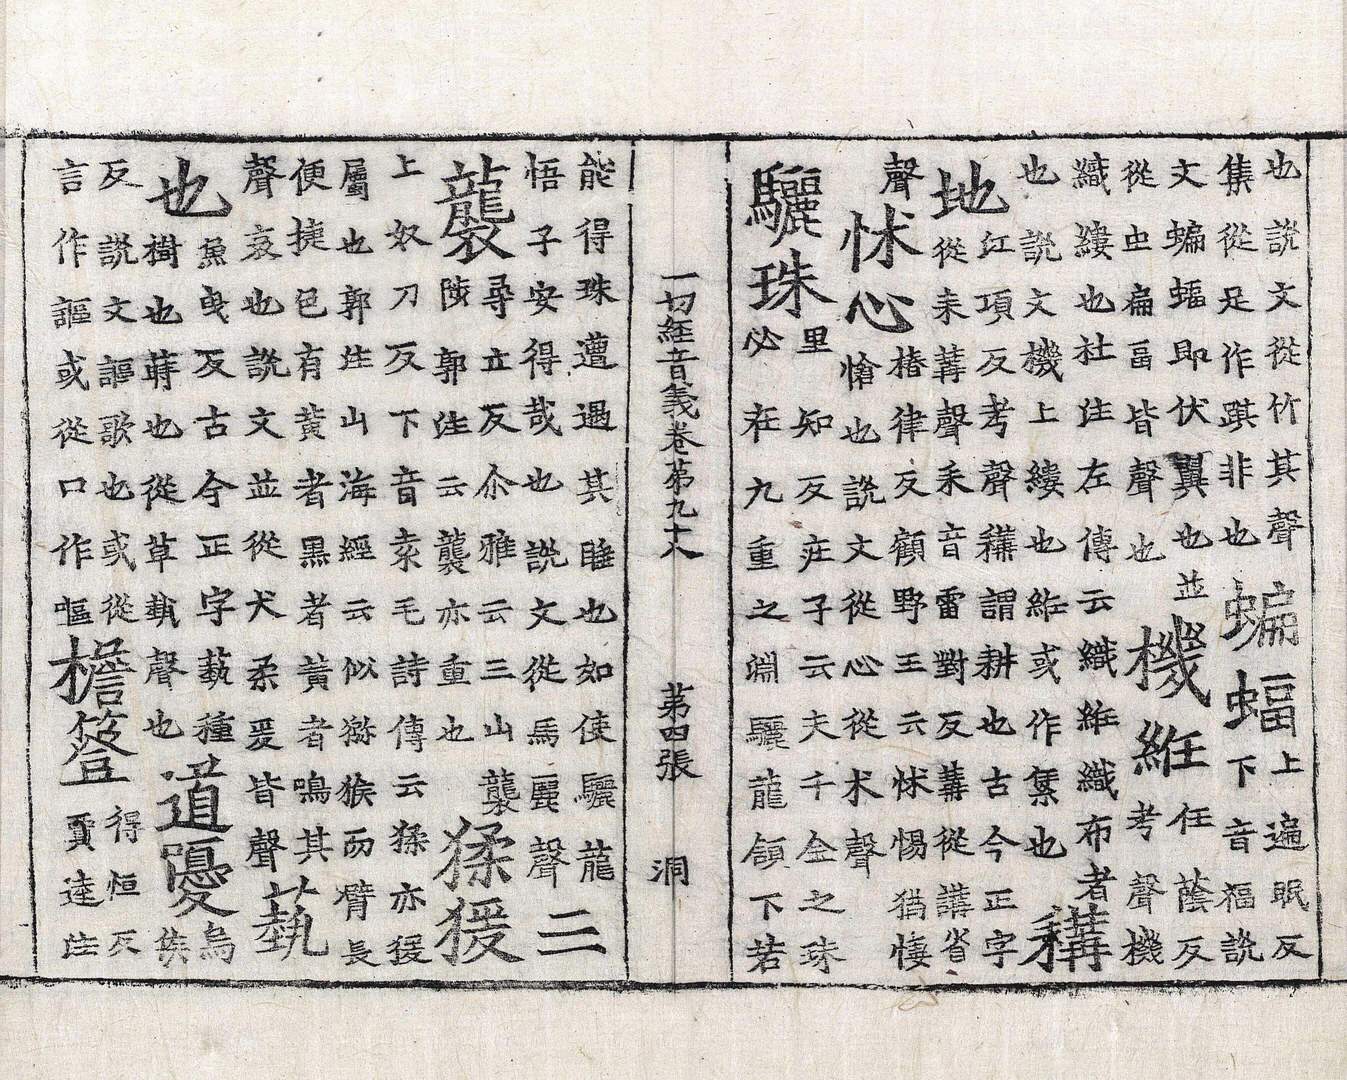 也說文從竹其聲蝙蝠上遍眠反
集從足作踑非也下音福說
文蝙蝠即伏翼也並機絍任蔭反
從虫扁畐皆聲也考聲機
織縷也杜注左傳云織絍織布者
也說文機上縷也絍或作䋕也䎱
地江項反考聲䎱謂耕也古今正字
從耒冓聲耒音雷對反冓從講省
聲怵心椿律反顧野王云怵惕猶悽
愴也說文從心從术聲
驪珠里知反莊子云夫千金之珠
必在九重之淵驪龍頷下若
一切經音義卷第九十八 第四張 洞
能得珠遭遇其睡也如使驪龍
悟子安得哉也說文從馬麗聲三
襲尋立反尒雅云三山襲
陟郭注云襲亦重也猱猨
上奴刀反下音袁毛詩傳云猱亦猨
屬也郭注山海經云似獼猴而臂長
便捷色有黃者黑者黃者鳴其
聲哀也說文並從犬柔爰皆聲藝
也魚曳反古今正字藝種
樹也蒔也從草埶聲也遒謳烏侯
反說文謳歌也或從
言作謳或從口作嘔檐簦得恒反
賈逵注